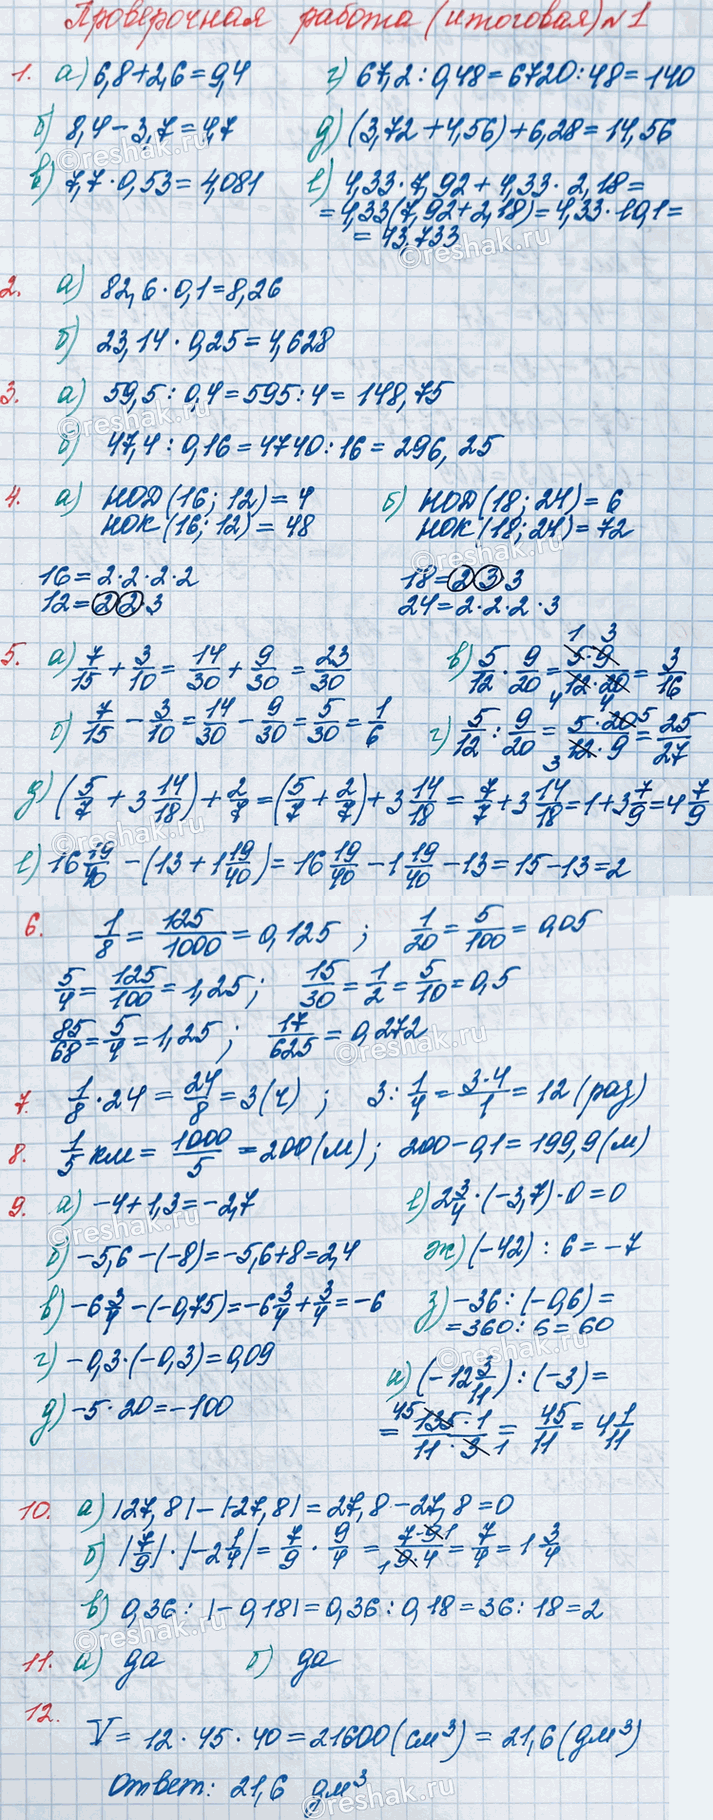 Проверочная работа (итоговая) №1
1. а) 6,8+2,6=9,4
г) 67,2:0,48=6720:48=140
б) 8,4-3,7=4,7
д) (3,72+4,56)+6,28=14,56
в) 7,7·0,53=4,081
е) 4,33·7,92+4,33·2,18=
=4,33(7,92+2,18)=4,33·10,1=
=43,733
2. а) 82,6·0,1=8,26
б) 23,14·0,25=4,628
3. а) 59,5:0,4=595:4=148,75
б) 47,4:0,16=4740:16=296,25
4. а) НОД(16;12)=4
НОК(16;12)=48
б) НОД(18;24)=6
НОК(18;24)=72
16=2·2·2·2
12=2·2·3
18=2·3·3
24=2·2·2·3
5. а) 7/15+3/10=14/30+9/30=23/30
в) 5/12·9/20=5·9/12·20=3/16
б) 7/15-3/10=14/30-9/30=5/30=1/6
г) 5/12:9/20=5·20/12·9=25/27
д) (5/7+3 14/18)+2/7=(5/7+2/7)+3 14/18=7/7+3 14/18=1+3 7/9=4 7/9
е) 16 19/40-(13+1 19/40)=16 19/40-1 19/40-13=15-13=2
6. 1/8=125/1000=0,125; 1/20=5/100=0,05
5/4=125/100=1,25; 15/30=1/2=5/10=0,5
85/68=5/4=1,25; 17/625=0,272
7. 1/8·24=24/8=3(ч); 3:1/4=3·4/1=12(раз)
8. 1/5 км=1000/5=200(м); 200-0,1=199,9(м)
9. а) -4+1,3=-2,7
е) 2 3/4·(-3,7)·0=0
б) -5,6-(-8)=-5,6+8=2,4
ж) (-42):6=-7
в) -6 3/4-(-0,75)=-6 3/4+3/4=-6
з) -36:(-0,6)=
=360:6=60
г) -0,3·(-0,3)=0,09
и) (-12 3/11):(-3)=
д) -5·20=-100
=135·1/11·3=45/11=4 1/11
10. а) |27,8|-|-27,8|=27,8-27,8=0
б) |7/9|·|-2 1/4|=7/9·9/4=7·9/9·4=7/4=1 3/4
в) 0,36:|-0,18|=0,36:0,18=36:18=2
11. а) да б) да
12.
V=12·45·40=21600(см³)=21,6(дм³)
Ответ: 21,6 дм³
reshak.ru